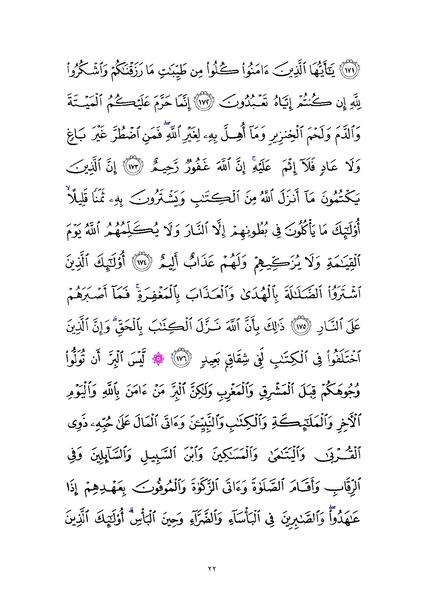 ١٧١ يَـٰٓأَيُّهَا ٱلَّذِينَ ءَامَنُوا۟ كُلُوا۟ مِن طَيِّبَـٰتِ مَا رَزَقْنَـٰكُمْ وَٱشْكُرُوا۟
لِلَّهِ إِن كُنتُمْ إِيَّاهُ تَعْبُدُونَ ١٧٢ إِنَّمَا حَرَّمَ عَلَيْكُمُ ٱلْمَيْتَةَ
وَٱلدَّمَ وَلَحْمَ ٱلْخِنزِيرِ وَمَآ أُهِلَّ بِهِۦ لِغَيْرِ ٱللَّهِ ۖ فَمَنِ ٱضْطُرَّ غَيْرَ بَاغٍ
وَلَا عَادٍ فَلَآ إِثْمَ عَلَيْهِ ۚ إِنَّ ٱللَّهَ غَفُورٌ رَّحِيمٌ ١٧٣ إِنَّ ٱلَّذِينَ
يَكْتُمُونَ مَآ أَنزَلَ ٱللَّهُ مِنَ ٱلْكِتَـٰبِ وَيَشْتَرُونَ بِهِۦ ثَمَنًا قَلِيلًا ۙ
أُو۟لَـٰٓئِكَ مَا يَأْكُلُونَ فِى بُطُونِهِمْ إِلَّا ٱلنَّارَ وَلَا يُكَلِّمُهُمُ ٱللَّهُ يَوْمَ
ٱلْقِيَـٰمَةِ وَلَا يُزَكِّيهِمْ وَلَهُمْ عَذَابٌ أَلِيمٌ ١٧٤ أُو۟لَـٰٓئِكَ ٱلَّذِينَ
ٱشْتَرَوُا۟ ٱلضَّلَـٰلَةَ بِٱلْهُدَىٰ وَٱلْعَذَابَ بِٱلْمَغْفِرَةِ ۚ فَمَآ أَصْبَرَهُمْ
عَلَى ٱلنَّارِ ١٧٥ ذَٰلِكَ بِأَنَّ ٱللَّهَ نَزَّلَ ٱلْكِتَـٰبَ بِٱلْحَقِّ ۗ وَإِنَّ ٱلَّذِينَ
ٱخْتَلَفُوا۟ فِى ٱلْكِتَـٰبِ لَفِى شِقَاقٍۭ بَعِيدٍ ١٧٦ ۞ لَّيْسَ ٱلْبِرَّ أَن تُوَلُّوا۟
وُجُوهَكُمْ قِبَلَ ٱلْمَشْرِقِ وَٱلْمَغْرِبِ وَلَـٰكِنَّ ٱلْبِرَّ مَنْ ءَامَنَ بِٱللَّهِ وَٱلْيَوْمِ
ٱلْـَٔاخِرِ وَٱلْمَلَـٰٓئِكَةِ وَٱلْكِتَـٰبِ وَٱلنَّبِيِّـۧنَ وَءَاتَى ٱلْمَالَ عَلَىٰ حُبِّهِۦ ذَوِى
ٱلْقُرْبَىٰ وَٱلْيَتَـٰمَىٰ وَٱلْمَسَـٰكِينَ وَٱبْنَ ٱلسَّبِيلِ وَٱلسَّآئِلِينَ وَفِى
ٱلرِّقَابِ وَأَقَامَ ٱلصَّلَوٰةَ وَءَاتَى ٱلزَّكَوٰةَ وَٱلْمُوفُونَ بِعَهْدِهِمْ إِذَا
عَـٰهَدُوا۟ ۖ وَٱلصَّـٰبِرِينَ فِى ٱلْبَأْسَآءِ وَٱلضَّرَّآءِ وَحِينَ ٱلْبَأْسِ ۗ أُو۟لَـٰٓئِكَ ٱلَّذِينَ
٢٢